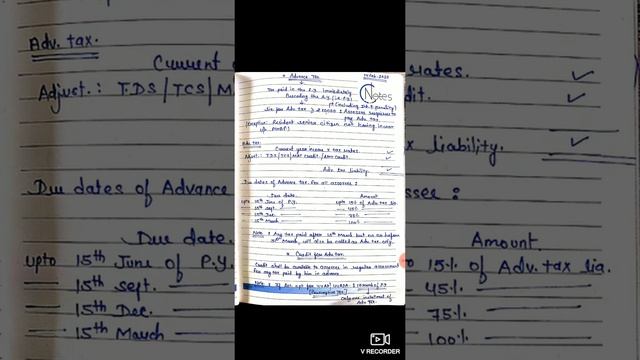 Adv. tax.
Current
Adjust.: TDS/TCS/M
Due dates of Advance
Due date.
upto 15th June of P.Y.
15th Sept.
15th Dec.
15th March
* Advance Tax.
C Notes
Tax paid in the P.Y. immediately
Preceding the A.Y. (i.e. P.Y.)
(Exception: Resident senior citizen not having income
Adv. tax:
Current year income x tax rates. ✓
Adjust.: TDS/TCS/MAT credit/AMT credit. ✓
Adv. tax liability. ✓
Due dates of Advance tax for all assessees:
Due date. Amount
upto 15th June of P.Y. upto 15% of Adv. tax lia.
15th Sept. 45%
15th Dec. 75%
15th March 100%
Note: Any tax paid after 15th March but on or before
31st March, will also be called as Adv. tax only.
* Credit for Adv. tax.
Credit shall be available to assessee in regular assessment
for any tax paid by him in advance
only one instalment of
Adv. Tax.
rates. ✓
dit. ✓
x liability. ✓
esses:
Amount
15% of Adv. tax lia.
45%
75%
100%
V RECORDER